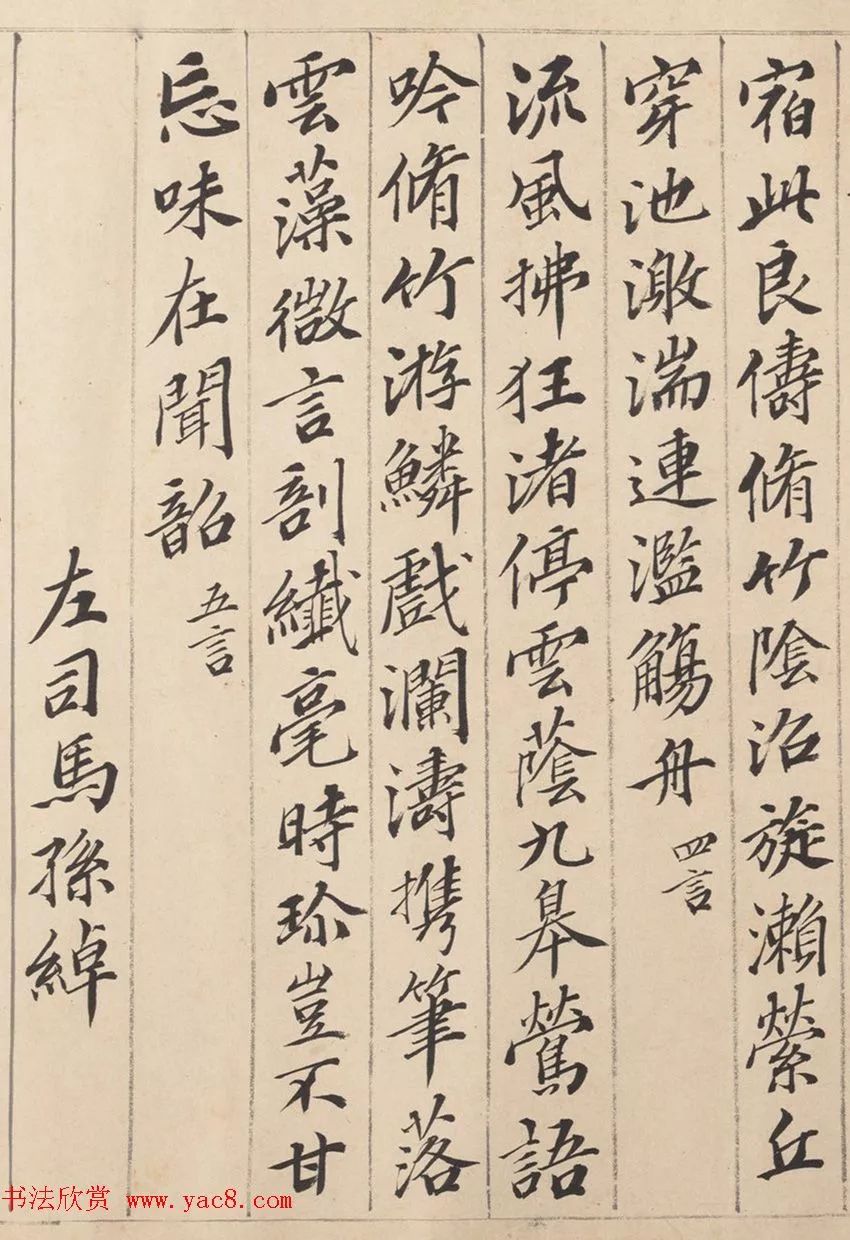 宿此良儔脩竹陰沼旋瀨縈丘
穿池激湍連濫觴舟 四言
流風拂狂渚停雲蔭九皋鶯語
吟脩竹游鱗戲瀾濤攜筆落
雲藻微言剖纖毫時珍豈不甘
忘味在聞韶 五言
左司馬孫綽
书法欣赏 www.yac8.com